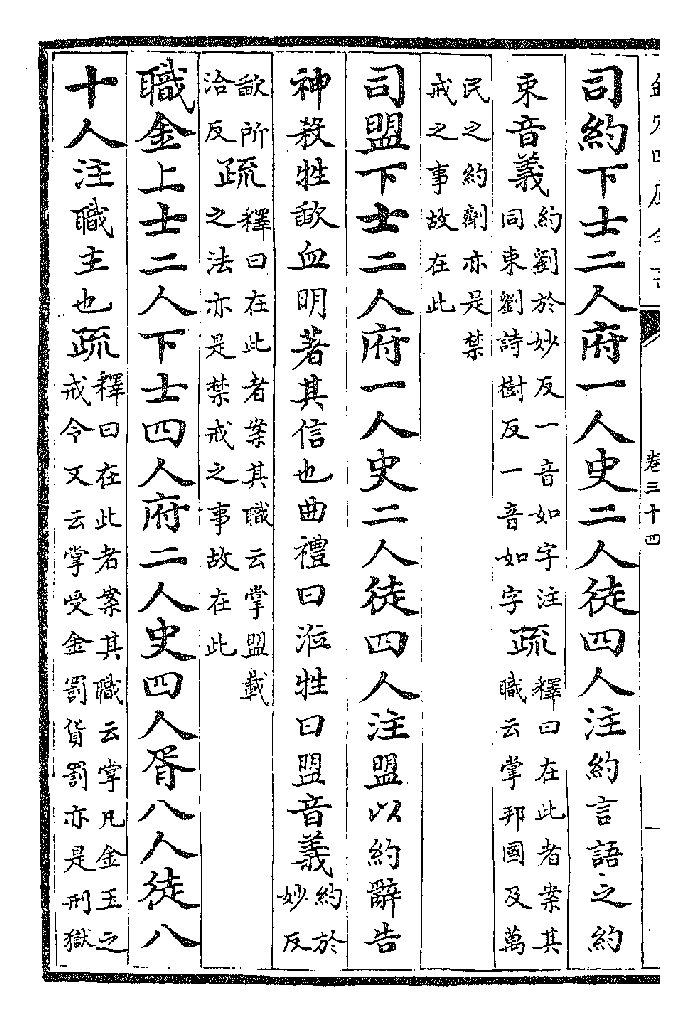 欽定四庫全書
卷三十四
司約下士二人府一人史二人徒四人注約言語之約
束音義約劉於妙反一音如字注同束劉詩樹反一音如字疏釋曰在此者案其職云掌邦國及萬
民之約劑亦是禁戒之事故在此
司盟下士二人府一人史二人徒四人注盟以約辭告
神殺牲歃血明著其信也曲禮曰涖牲曰盟音義約於妙反
歃所洽反疏釋曰在此者案其職云掌盟載之法亦是禁戒之事故在此
職金上士二人下士四人府二人史四人胥八人徒八
十人注職主也疏釋曰在此者案其職云掌凡金玉之戒令又云掌受金罰貨罰亦是刑獄